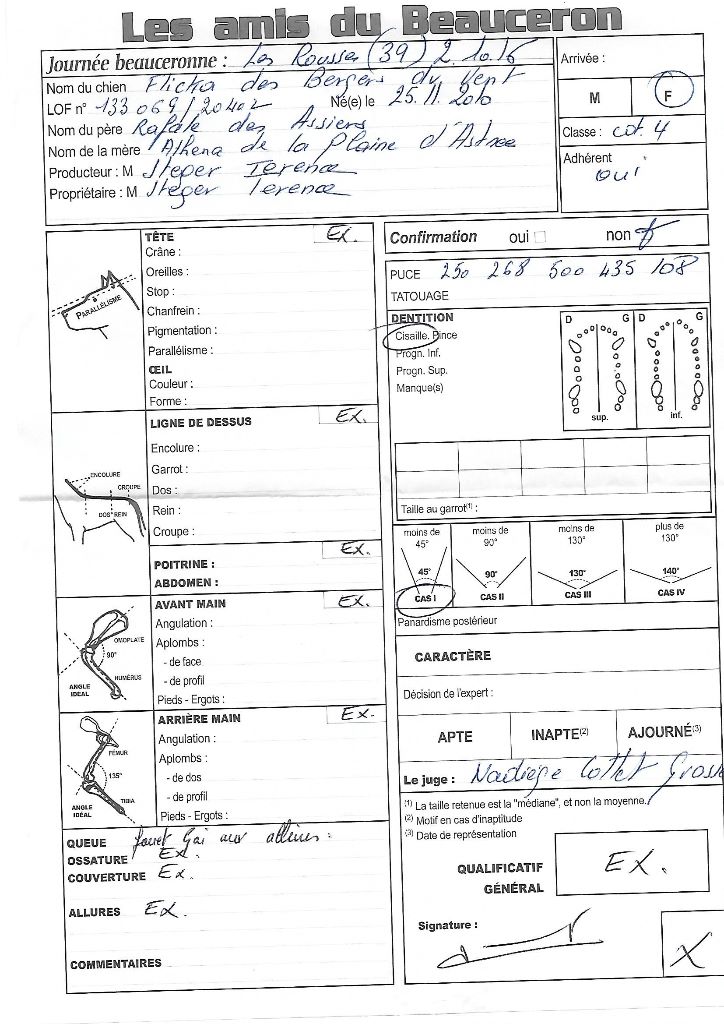 Les amis du Beauceron
Journée beauceronne : Les Rousses (39) 2.10.16
Nom du chien Flicka des Bergers du Vent
LOF n° 133 069 / 20402 Né(e) le 25.11.2010
Nom du père Rafale des Assiers
Nom de la mère Athena de la Plaine d'Astree
Producteur : M Steger Terence
Propriétaire : M Steger Terence
Arrivée :
M F
Classe : cot. 4
Adhérent
oui
PARALLÉLISME
TÊTE Ex.
Crâne :
Oreilles :
Stop :
Chanfrein :
Pigmentation :
Parallélisme :
ŒIL
Couleur :
Forme :
ENCOLURE
CROUPE
DOS REIN
LIGNE DE DESSUS Ex.
Encolure :
Garrot :
Dos :
Rein :
Croupe :
POITRINE : Ex.
ABDOMEN :
OMOPLATE
90°
HUMÉRUS
ANGLE
IDÉAL
AVANT MAIN Ex.
Angulation :
Aplombs :
- de face
- de profil
Pieds - Ergots :
FÉMUR
135°
TIBIA
ANGLE
IDÉAL
ARRIÈRE MAIN Ex.
Angulation :
Aplombs :
- de dos
- de profil
Pieds - Ergots :
QUEUE fouet Gai aux allures.
OSSATURE Ex.
COUVERTURE Ex.
ALLURES Ex.
COMMENTAIRES
Confirmation oui non
PUCE 250 268 500 435 108
TATOUAGE
DENTITION
Cisaille. Pince
Progn. Inf.
Progn. Sup.
Manque(s)
D G D G
sup. inf.
Taille au garrot(1) :
moins de 45° moins de 90° moins de 130° plus de 130°
45° 90° 130° 140°
CAS I CAS II CAS III CAS IV
Panardisme postérieur
CARACTÈRE
Décision de l'expert :
APTE INAPTE(2) AJOURNÉ(3)
Le juge : Nadiège Cottet
(1) La taille retenue est la "médiane", et non la moyenne.
(2) Motif en cas d'inaptitude
(3) Date de représentation
QUALIFICATIF
GÉNÉRAL
Ex.
Signature :
X